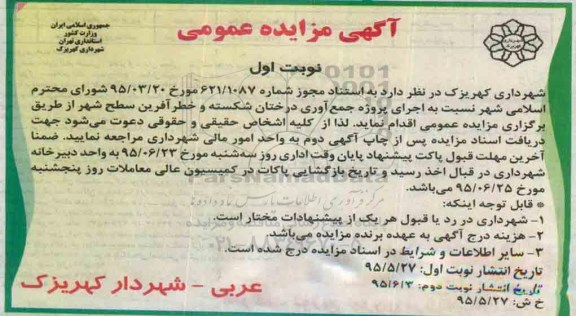 جمهوری اسلامی ایران
وزارت کشور
استانداری تهران
شهرداری کهریزک
آگهی مزایده عمومی
نوبت اول
شهرداری کهریزک در نظر دارد به استناد مجوز شماره ۶۲۱/۱۰۸۷ مورخ ۹۵/۰۳/۲۰ شورای محترم
اسلامی شهر نسبت به اجرای پروژه جمع‌آوری درختان شکسته و خطرآفرین سطح شهر از طریق
برگزاری مزایده عمومی اقدام نماید. لذا از کلیه اشخاص حقیقی و حقوقی دعوت می‌شود جهت
دریافت اسناد مزایده پس از چاپ آگهی دوم به واحد امور مالی شهرداری مراجعه نمایید. ضمنا
آخرین مهلت قبول پاکت پیشنهاد پایان وقت اداری روز سه‌شنبه مورخ ۹۵/۰۶/۲۳ به واحد دبیرخانه
شهرداری در قبال اخذ رسید و تاریخ بازگشایی پاکات در کمیسیون عالی معاملات روز پنجشنبه
مورخ ۹۵/۰۶/۲۵ می‌باشد.
* قابل توجه اینکه:
۱- شهرداری در رد یا قبول هر یک از پیشنهادات مختار است.
۲- هزینه درج آگهی به عهده برنده مزایده می‌باشد.
۳- سایر اطلاعات و شرایط در اسناد مزایده درج شده است.
تاریخ انتشار نوبت اول: ۹۵/۵/۲۷
تاریخ انتشار نوبت دوم: ۹۵/۶/۳
خ ش: ۹۵/۵/۲۷
عربی - شهردار کهریزک
ParsNamadData